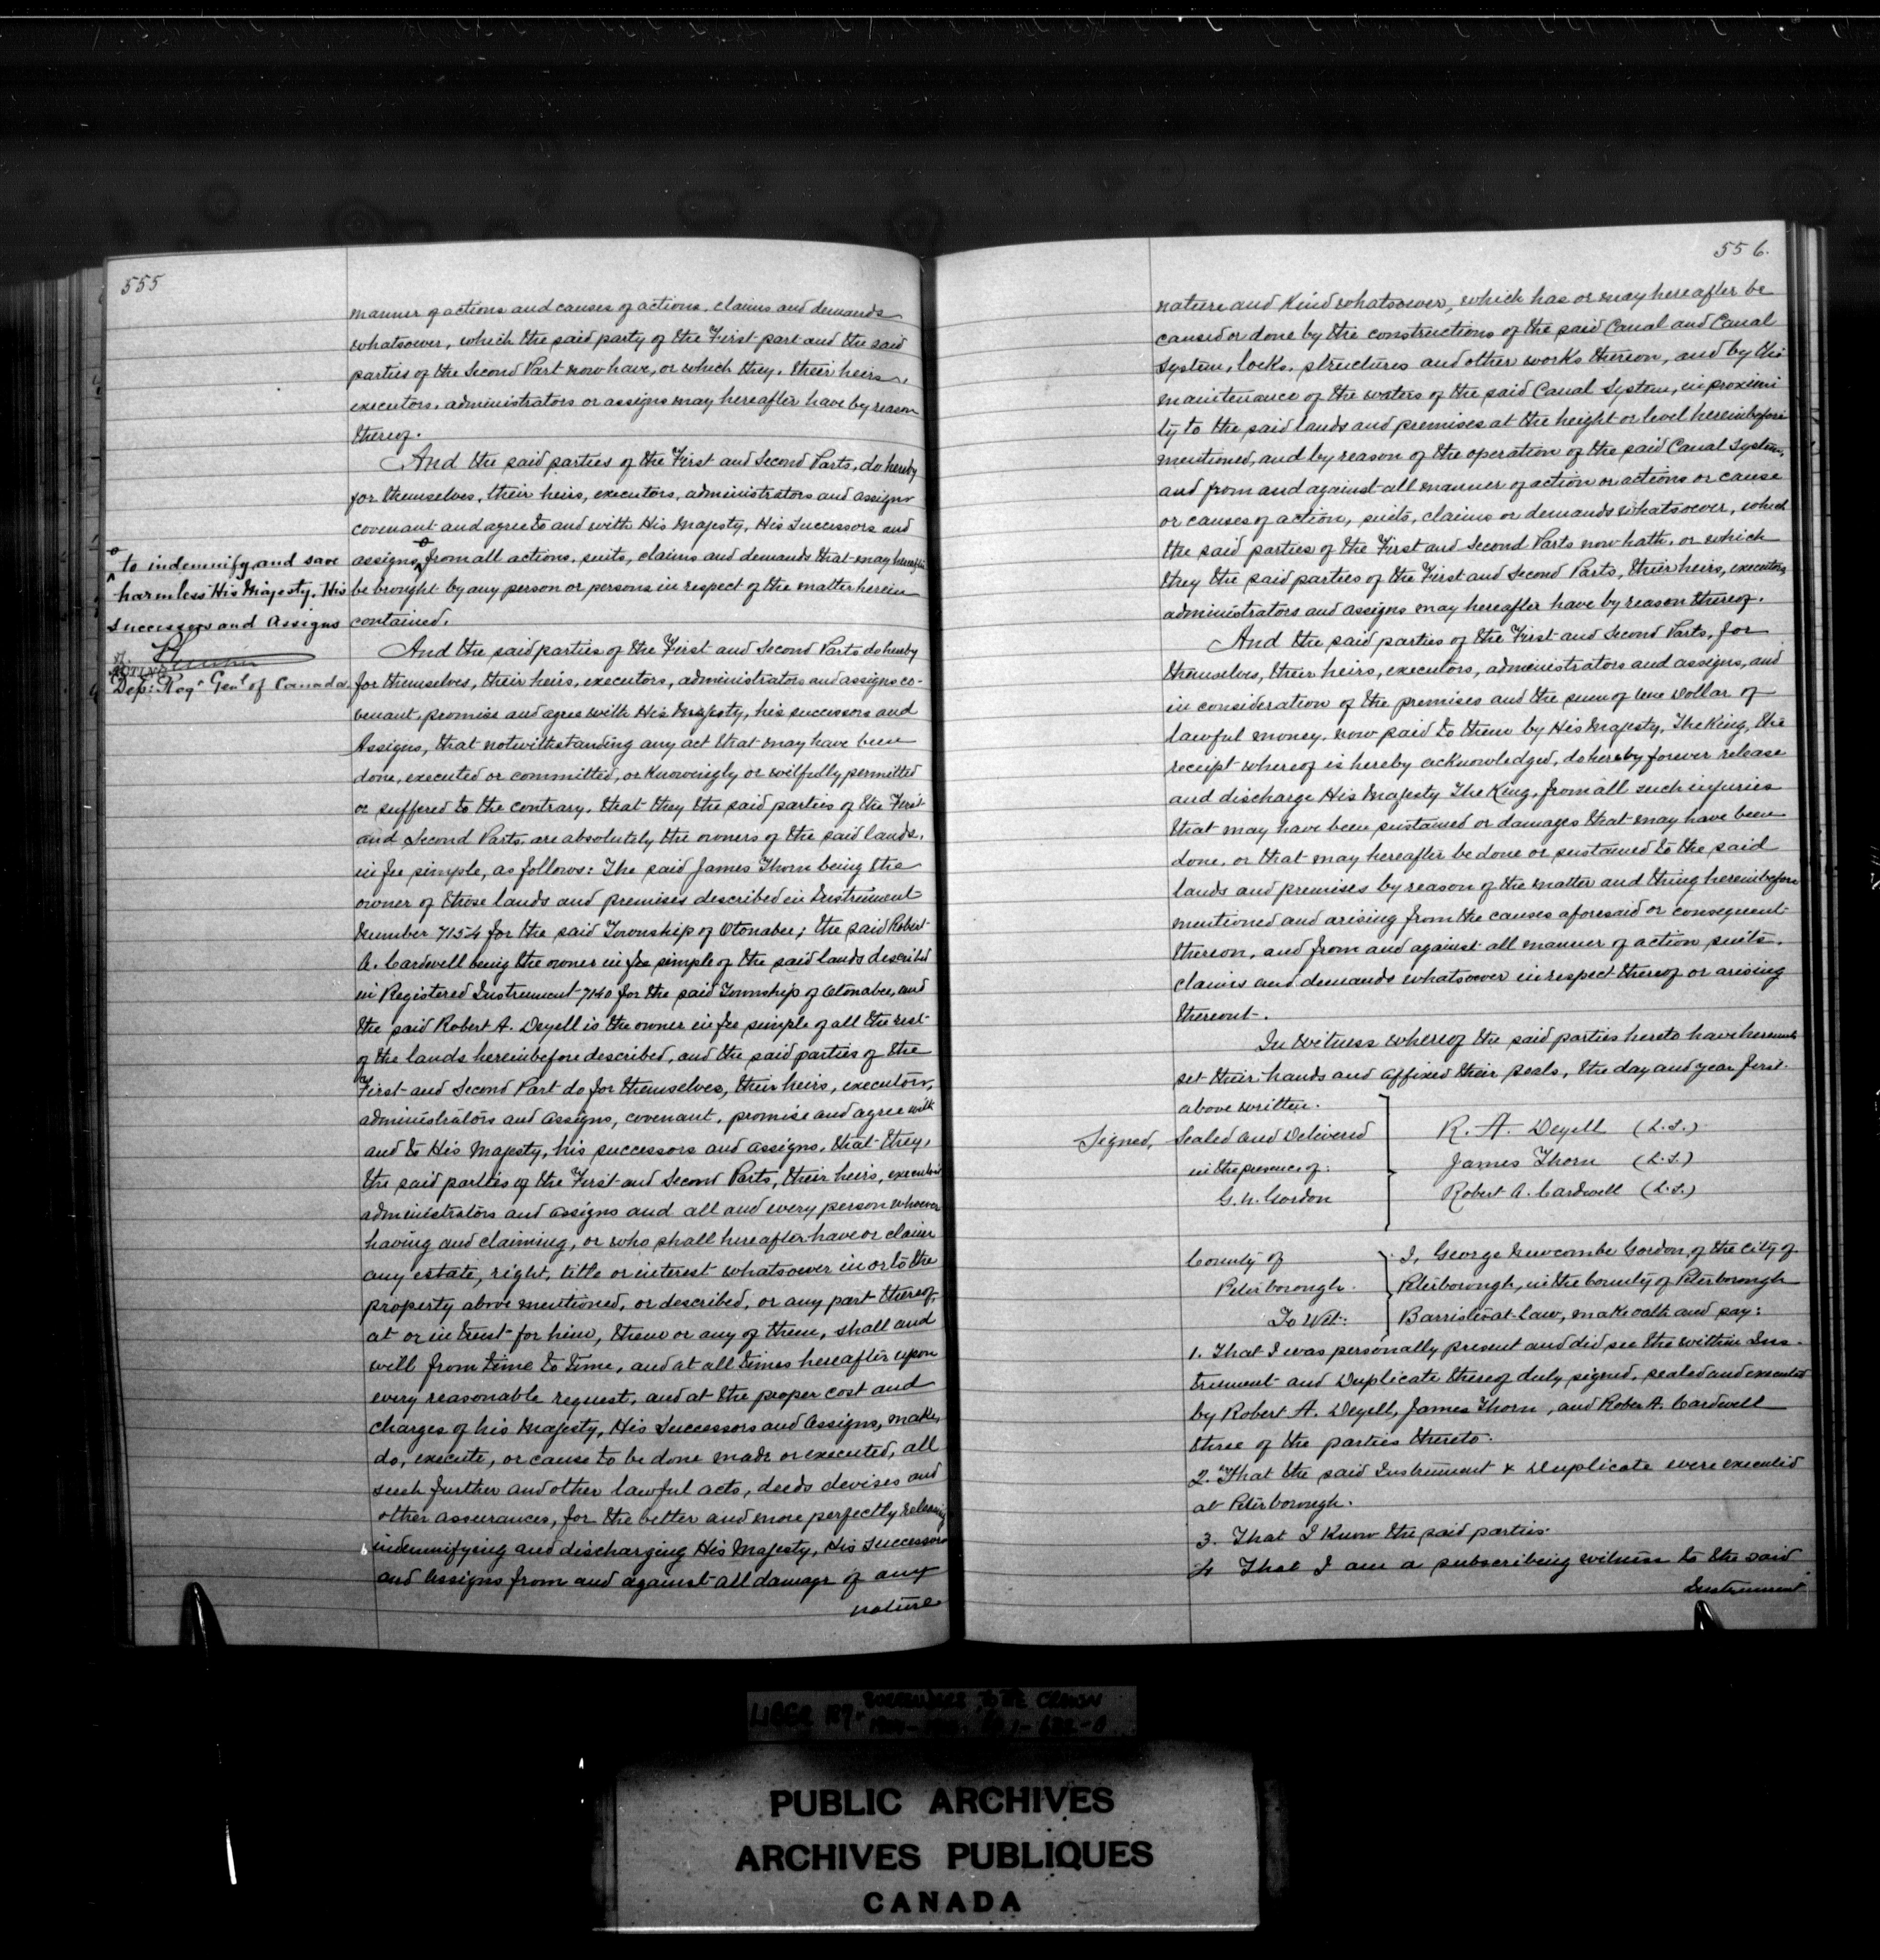 555
manner of actions and causes of actions, claims and demands
whatsoever, which the said party of the First part and the said
parties of the Second Part now have, or which they, their heirs,
executors, administrators or assigns may hereafter have by reason
thereof.
And the said parties of the First and Second Parts, do hereby
for themselves, their heirs, executors, administrators and assigns
covenant and agree to and with His Majesty, His Successors and
assigns, from all actions, suits, claims and demands that may hereafter
be brought by any person or persons in respect of the matter herein
contained.
to indemnify and save
harmless His Majesty, His
Successors and Assigns
ACTING
Dep: Regr Genl of Canada
And the said parties of the First and Second Parts do hereby
for themselves, their heirs, executors, administrators and assigns co-
venant, promise and agree with His Majesty, his successors and
Assigns, that notwithstanding any act that may have been
done, executed or committed, or knowingly or wilfully permitted
or suffered to the contrary, that they the said parties of the First
and Second Parts, are absolutely the owners of the said lands,
in fee simple, as follows: The said James Thorn being the
owner of those lands and premises described in Instrument
Number 7154 for the said Township of Otonabee; the said Robert
A. Cardwell being the owner in fee simple of the said lands described
in Registered Instrument 7140 for the said Township of Otonabee, and
the said Robert A. Deyell is the owner in fee simple of all the rest
of the lands hereinbefore described, and the said parties of the
First and Second Part do for themselves, their heirs, executors,
administrators and assigns, covenant, promise and agree with
and to His Majesty, his successors and assigns, that they,
the said parties of the First and Second Parts, their heirs, executors
administrators and assigns and all and every person whoever
having and claiming, or who shall hereafter have or claim
any estate, right, title or interest whatsoever in or to the
property above mentioned, or described, or any part thereof,
at or in trust for him, them or any of them, shall and
will from time to time, and at all times hereafter upon
every reasonable request, and at the proper cost and
charges of his Majesty, His Successors and Assigns, make,
do, execute, or cause to be done made or executed, all
such further and other lawful acts, deeds devises and
other assurances, for the better and more perfectly releasing
indemnifying and discharging His Majesty, His Successors
and Assigns from and against all damage of any
nature
556.
nature and kind whatsoever, which has or may hereafter be
caused or done by the constructions of the said Canal and Canal
System, locks, structures and other works thereon, and by the
maintenance of the waters of the said Canal System, in proximi
ty to the said lands and premises at the height or level hereinbefore
mentioned, and by reason of the operation of the said Canal System,
and from and against all manner of action or actions or cause
or causes of action, suits, claims or demands whatsoever, which
the said parties of the First and Second Parts now hath, or which
they the said parties of the First and Second Parts, their heirs, executors,
administrators and assigns may hereafter have by reason thereof.
And the said parties of the First and Second Parts, for
themselves, their heirs, executors, administrators and assigns, and
in consideration of the premises and the sum of One Dollar of
lawful money, now paid to them by His Majesty, The King, the
receipt whereof is hereby acknowledged, do hereby forever release
and discharge His Majesty The King, from all such injuries
that may have been sustained or damages that may have been
done, or that may hereafter be done or sustained to the said
lands and premises by reason of the matter and thing hereinbefore
mentioned and arising from the causes aforesaid or consequent
thereon, and from and against all manner of action suits,
claims and demands whatsoever in respect thereof or arising
thereout.
In Witness whereof the said parties hereto have hereunto
set their hands and affixed their seals, the day and year first
above written.
Signed, Sealed and Delivered
in the presence of:
G. N. Gordon
R. A. Deyell (L.S.)
James Thorn (L.S.)
Robert A. Cardwell (L.S.)
County of
Peterborough.
To Wit:
I, George Newcombe Gordon, of the City of
Peterborough, in the County of Peterborough
Barrister at law, make oath and say:
1. That I was personally present and did see the within Ins-
trument and Duplicate thereof duly signed, sealed and executed
by Robert A. Deyell, James Thorn, and Robert A. Cardwell
three of the parties thereto.
2. That the said Instrument & Duplicate were executed
at Peterborough.
3. That I know the said parties.
4 That I am a subscribing witness to the said
Instrument
LIBER 127. SURRENDERS TO THE CROWN
PUBLIC ARCHIVES
ARCHIVES PUBLIQUES
CANADA